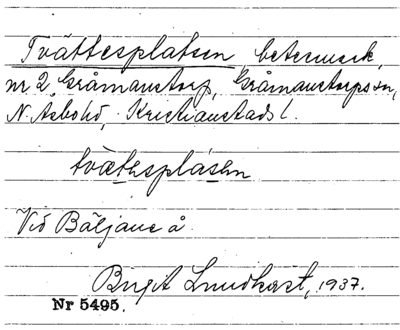 Tvättesplatsen, betesmark,
nr 2, Gråmanstorp, Gråmanstorps sn,
N. Åsbo hd, Kristianstads l.
tvätesplásen
Vid Bäljane å.
Birgit Lundkvist, 1937.
Nr 5495.